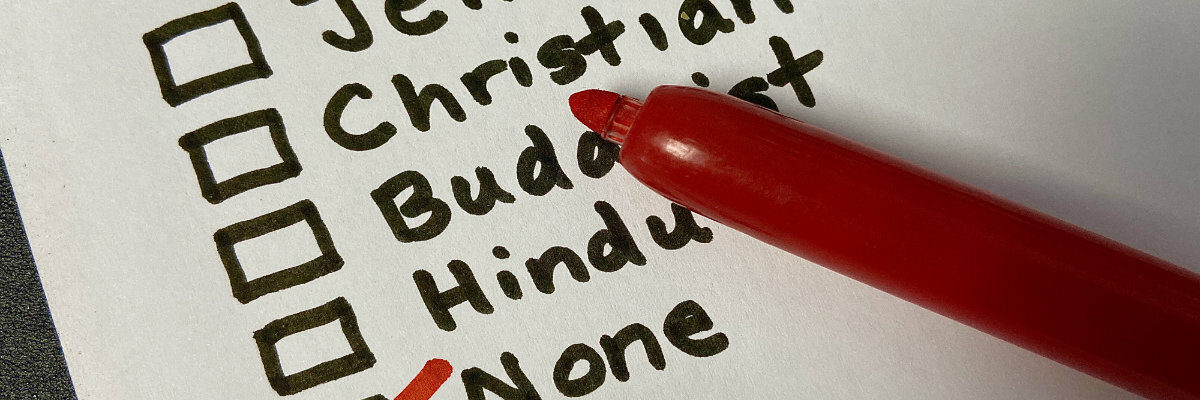 Christian
Buddhist
Hindu
None